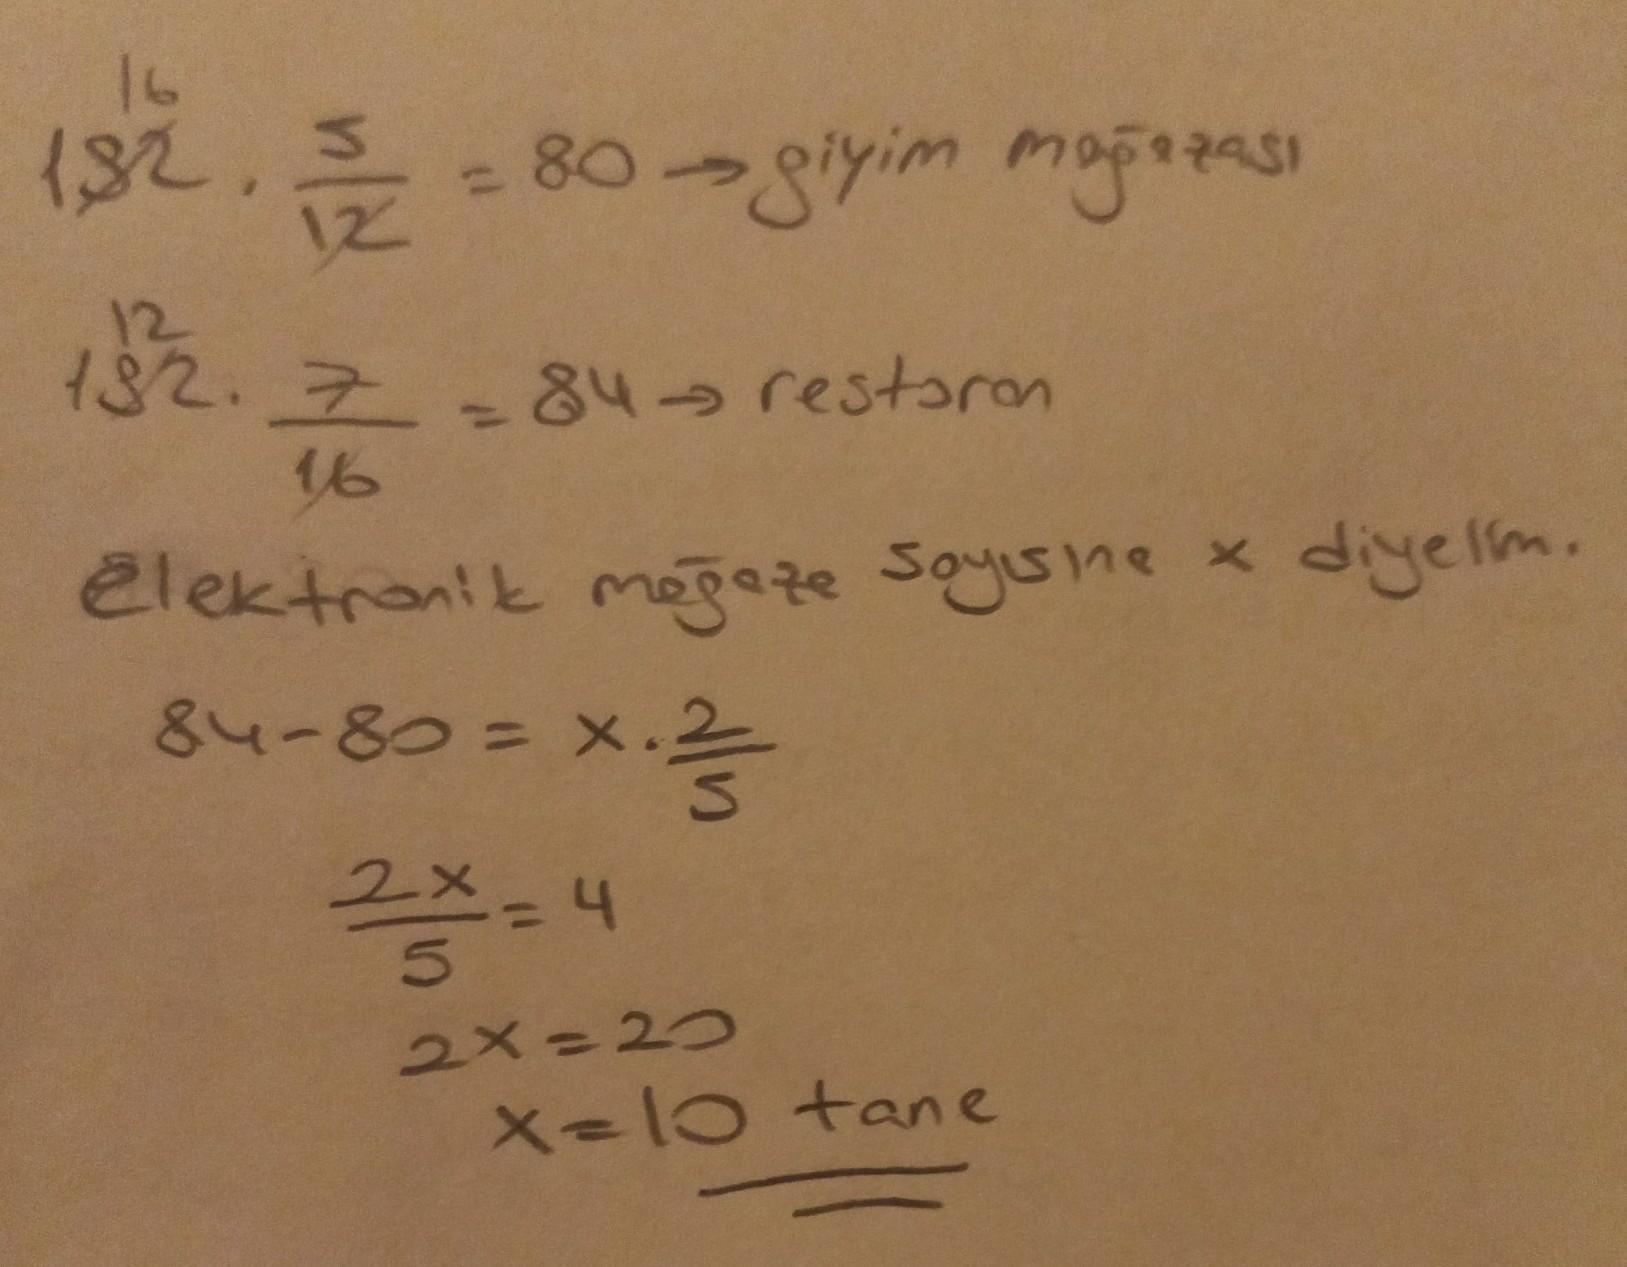 16
192 . 5/12 = 80 → giyim mağazası
12
192 . 7/16 = 84 → restoran
Elektronik mağaza sayısına x diyelim.
84 - 80 = x . 2/5
2x/5 = 4
2x = 20
x = 10 tane